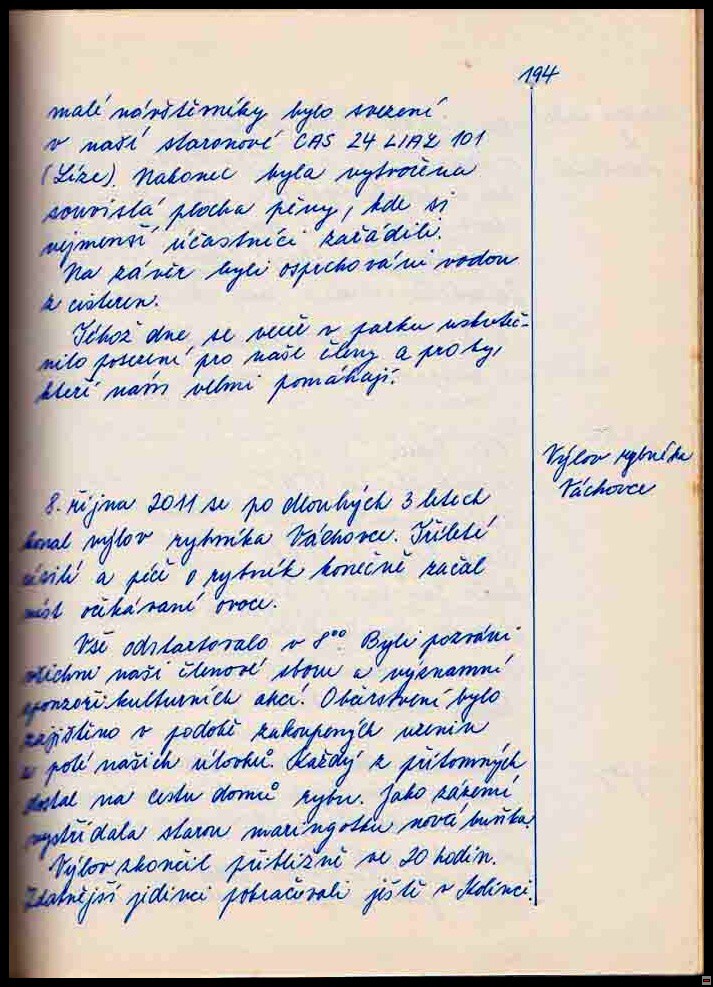 194
malé návštěvníky bylo svezení
v naší staronové CAS 24 LIAZ 101
(Líze). Nakonec byla vytvořena
souvislá plocha pěny, kde si
nejmenší účastníci zařádili.
Na závěr byli osprchováni vodou
z cisteren.
Téhož dne se večer v parku uskuteč-
nilo posezení pro naše členy a pro ty,
kteří nám velmi pomáhají.
Výlov rybníka
Váchovce
8. října 2011 se po dlouhých 3 letech
konal výlov rybníka Váchovce. Tříleté
úsilí a péče o rybník konečně začal
nést očekávané ovoce.
Vše odstartovalo v 8°° Byli pozváni
všichni naši členové sboru a významní
sponzoři kulturních akcí. Občerstvení bylo
zajištěno v podobě zakoupených uzenin
a poté našich úlovků. Každý z přítomných
dostal na cestu domů rybu. Jako zázemí
vystřídala starou maringotku nová buňka.
Výlov skončil přibližně ve 20 hodin.
Zdatnější jedinci pokračovali ještě v